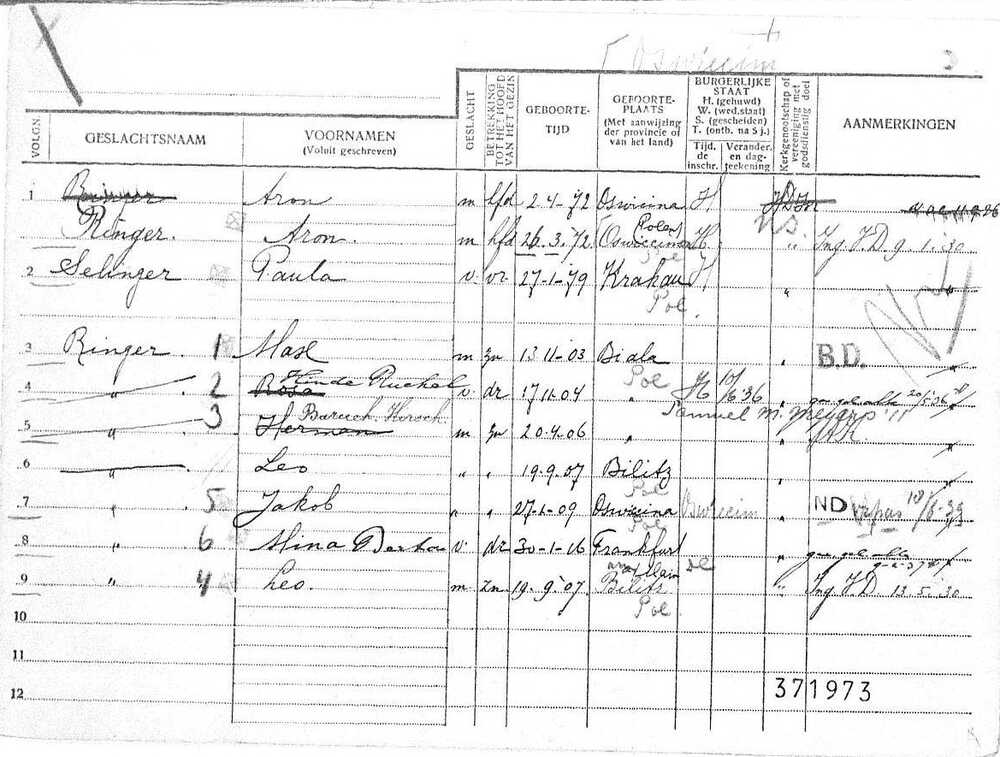 Oswiecim
VOLGN.
GESLACHTSNAAM
VOORNAMEN
(Voluit geschreven)
GESLACHT
BETREKKING TOT HET HOOFD VAN HET GEZIN
GEBOORTE-
TIJD
GEBOORTE-
PLAATS
(Met aanwijzing
der provincie of
van het land)
BURGERLIJKE
STAAT
H. (gehuwd)
W. (wed.staat)
S. (gescheiden)
T. (ontb. na 5 j.)
Tijd.
de
inschr.
Verander.
en dag-
teekening
Kerkgenootschap of
vereeniging met
godsdienstig doel
AANMERKINGEN
1 Aron m hfd 2-4-72 Oswicina H
Ringer. Aron. m hfd 26-3-72 Polen H. N.S. " Ing J.D. 9.1.30
2 Selinger Paula v. vr. 27-1-79 Krakau H " "
Pol
3 Ringer. 1 Max m zn 13-11-03 Biala " B.D.
Pol
4 " 2 Rosa Hinde Ruchel v. dr. 17-11-04 " H 10/6'36 20/5-36
Samuel M. Meyers
5 " 3 Herman Baruch Hirsch m zn 20-4-06 " "
6 " Leo " " 19-9-07 Bilitz "
Pol
7 " 5 Jakob " " 27-1-09 Oswicina Oswiecim " ND
Pol
8 " 6 Mina v. dr. 30-1-16 Frankfurt "
a/Main
9 " 4 Leo. m zn. 19-9-07 Bilitz " Ing J.D. 13.5.30
Pol.
10
11
12
371973